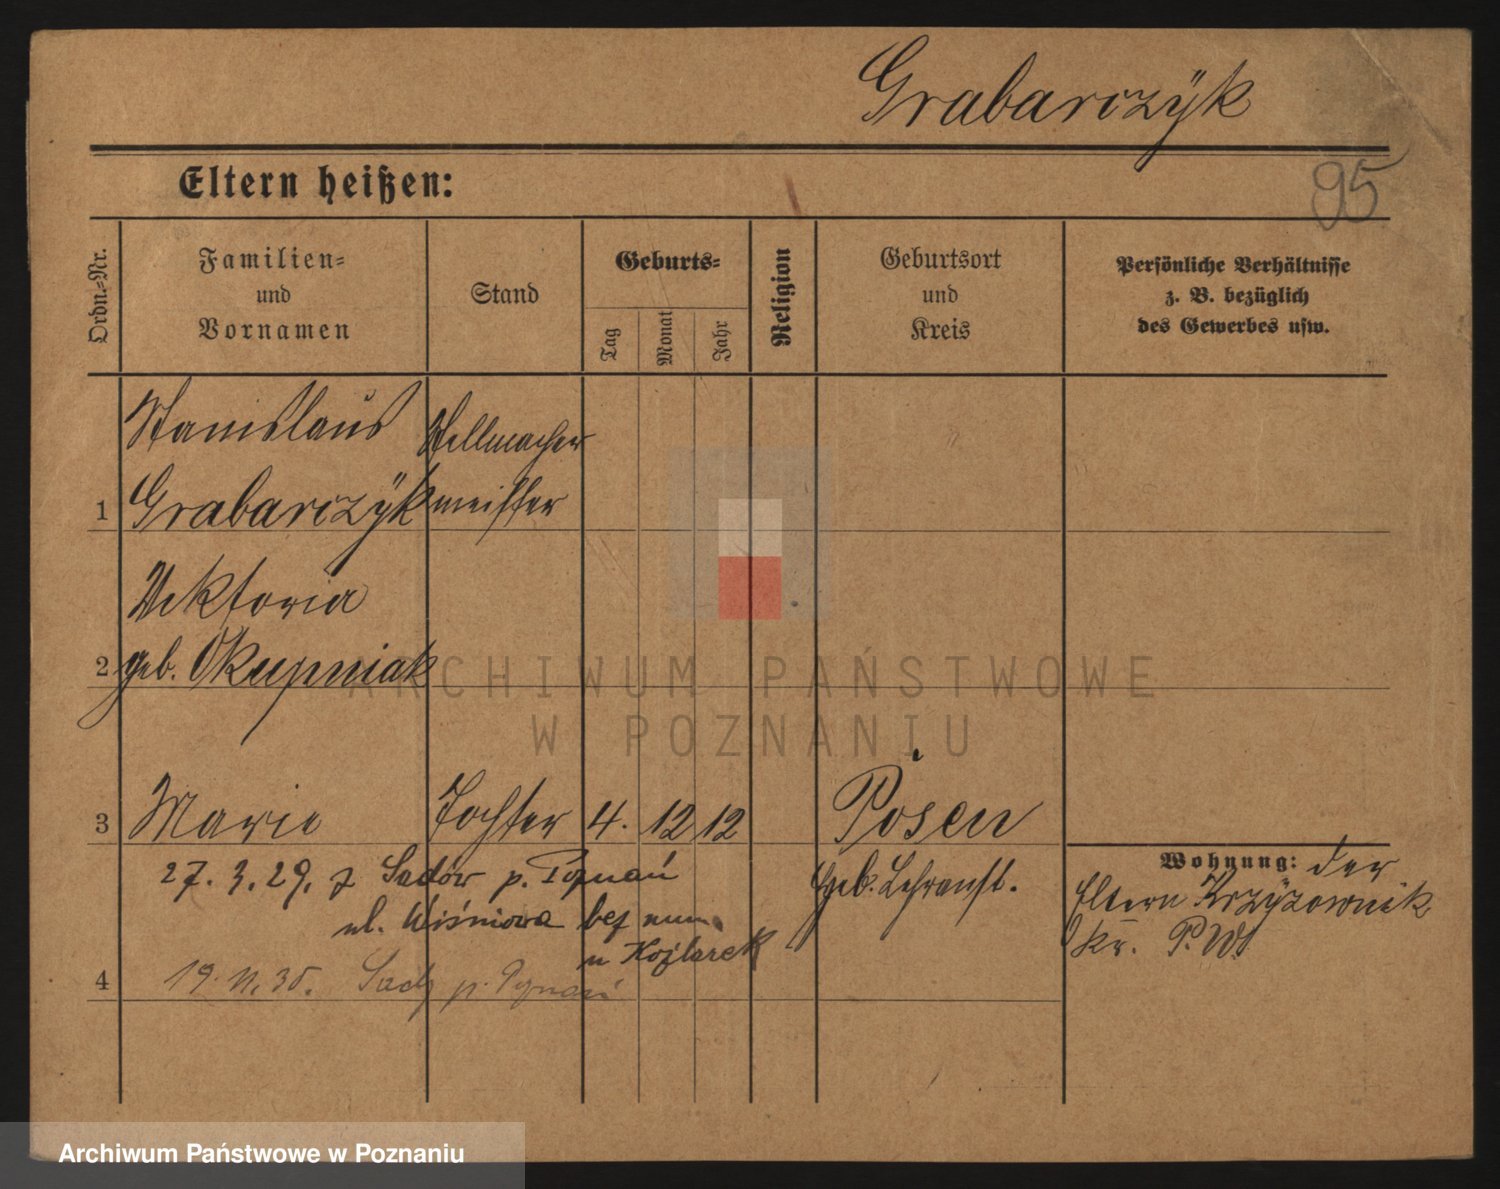 Grabarczÿk
95
Eltern heißen:
Ordn.-Nr.
Familien-
und
Vornamen
Stand
Geburts-
Tag
Monat
Jahr
Religion
Geburtsort
und
Kreis
Persönliche Verhältnisse
z. B. bezüglich
des Gewerbes usw.
Stanislaus Stellmacher
1 Grabarczÿk meister
Viktoria
2 geb. Okupniak
3 Marie Tochter 4. 12 12 Posen
Geb. Lehranst.
Wohnung: der
Eltern Krzÿzownik
Kr. P. W.
27. 3. 29. z Sadów p. Poznań
ul. Wiśniowa bez num
u Kozlarek
4 19. 11. 30. p. Poznań
ARCHIWUM PAŃSTWOWE
W POZNANIU
Archiwum Państwowe w Poznaniu